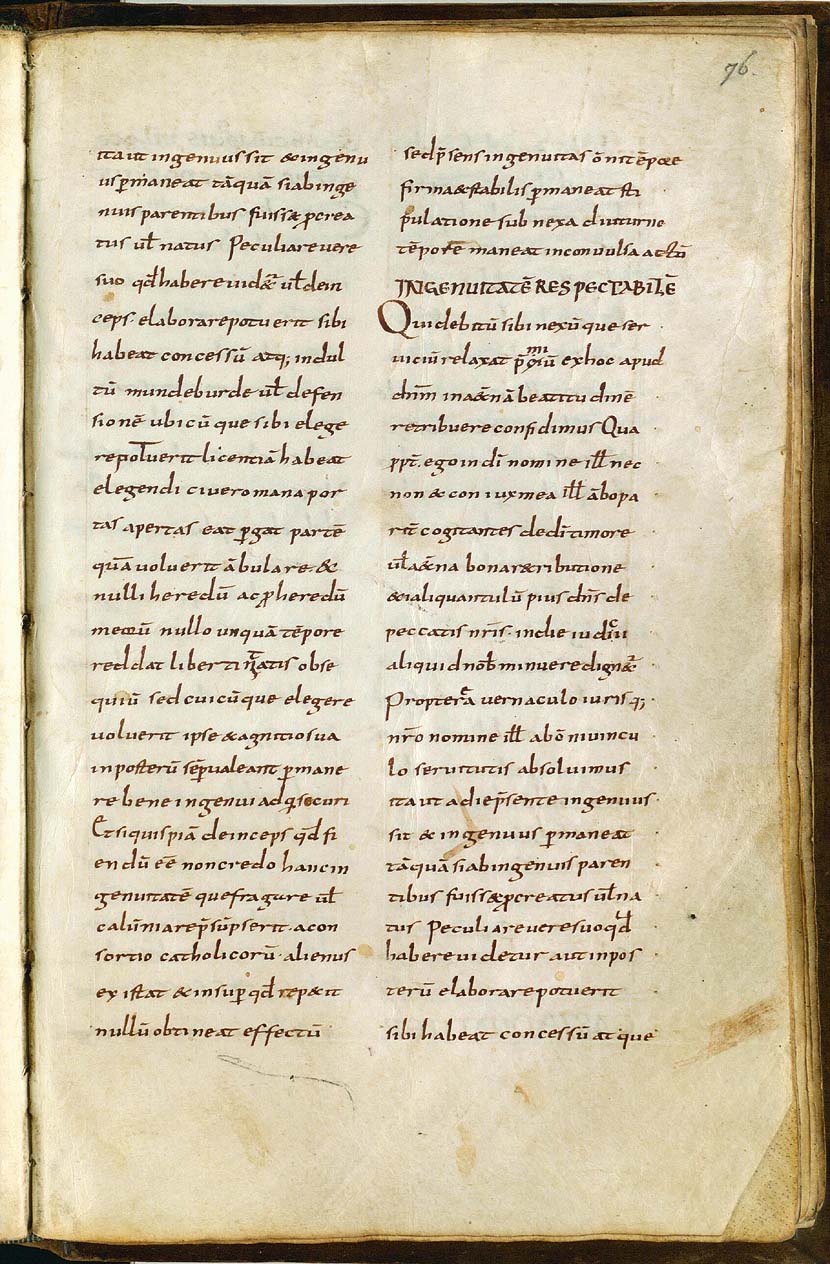 76.
ita ut ingenuus sit & ingenu
us p̄maneat tāquā si ab inge
nuis parentibus fuiss& p̄crea
tus ul̄ natus Peculiare vere
suo qd̄ habere uid&ur ul̄ dein
ceps elaborare potuerit sibi
habeat concessū atq; indul
tū mundeburde ul̄ defen
sionē ubicūque sibi elege
re potuerit licentiā habeat
elegendi ciue romana por
tas apertas eat p̄gat partē
quā uoluerit ābulare &
nulli heredū ac p̄heredū
meorū nullo unquā tēpore
reddat libertinitatis obse
quiū sed cuicūque elegere
uoluerit ipse & agnitio sua
in posterū sēp̄ ualeant p̄mane
re bene ingenui adq; securi
Et siquispiā deinceps qd̄ fi
endū eē̄ non credo hanc in
genuitatē que fragare ul̄
calūniare p̄sūpserit . a con
sortio catholicorū . alienus
existat & insup̄ qd̄ rep&it
nullū obtineat effectū
sed p̄sens ingenuitas ōni tēpore
firma & stabilis p̄maneat sti
pulatione subnexa diuturno
tēpore maneat inconuulsa actū
INGENUITATĒ RESPECTABILĒ
Qui debitū sibi nexūque ser
uiciū relaxat p̄miū ex hoc apud
dn̄m in a&nā beatitudinē
retribuere confidimus Qua
ppt̄. ego in dī nomine ill̄ nec
non & coniux mea ill̄ ābo pa
rit̄ cogitantes de dī timore
ul̄ a&na bona r&ributione
& ialiquantulū pius dn̄s de
peccatis nr̄is . in die iudiciu
aliquid nob̄ minuere dign&ur
Propterea uernaculo iuris q;
nr̄o nomine ill̄ ab ōni uincu
lo seruitutis absoluimus
ita ut a die p̄sente ingenuus
sit & ingenuus p̄maneat
tāquā si ab ingenuis paren
tibus fuiss& p̄creatus ul̄ na
tus Peculiare vere suo qd̄
habere uidetur aut in pos
terū elaborare potuerit
sibi habeat concessū atque